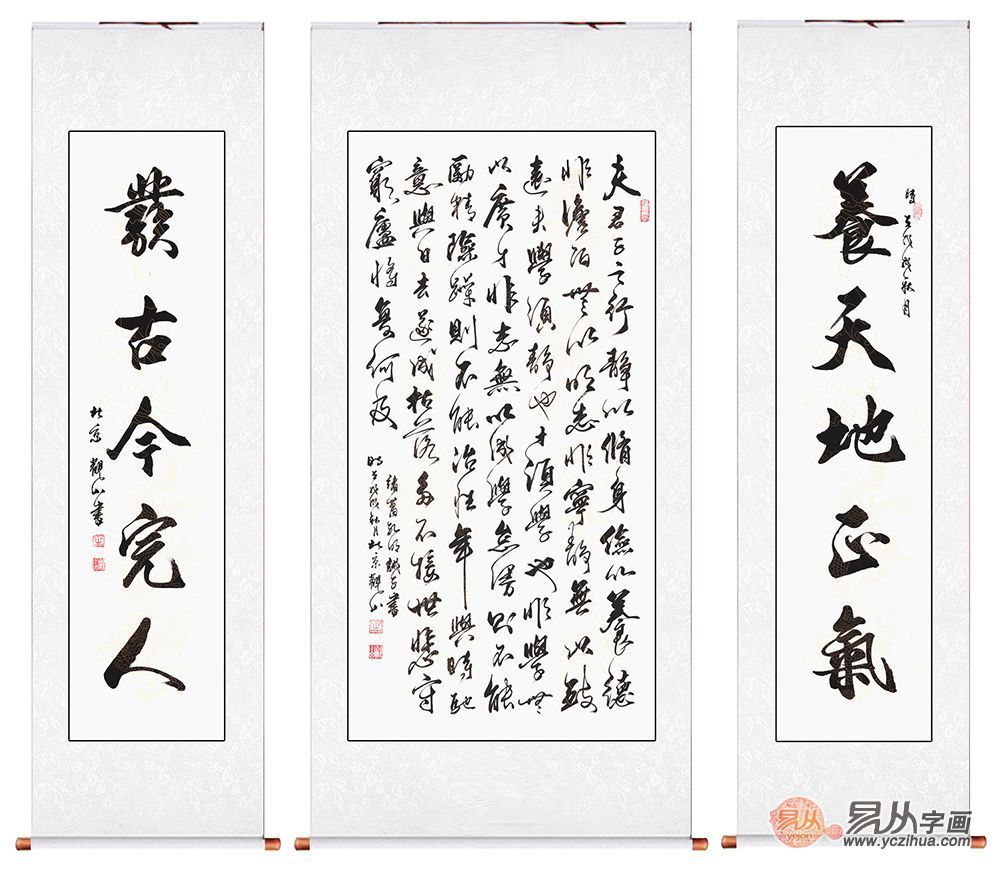 養天地正氣
戊戌秋月
夫君子之行靜以脩身儉以養德
非澹泊無以明志非寧靜無以致
遠夫學須靜也才須學也非學無
以廣才非志無以成學怠慢則不能
勵精險躁則不能冶性年與時馳
意與日去遂成枯落多不接世悲守
窮廬將復何及
諸葛孔明誡子書
戊戌秋月北京觀山
發古今完人
北京觀山書
易从
yigon
易从字画
www.yczihua.com